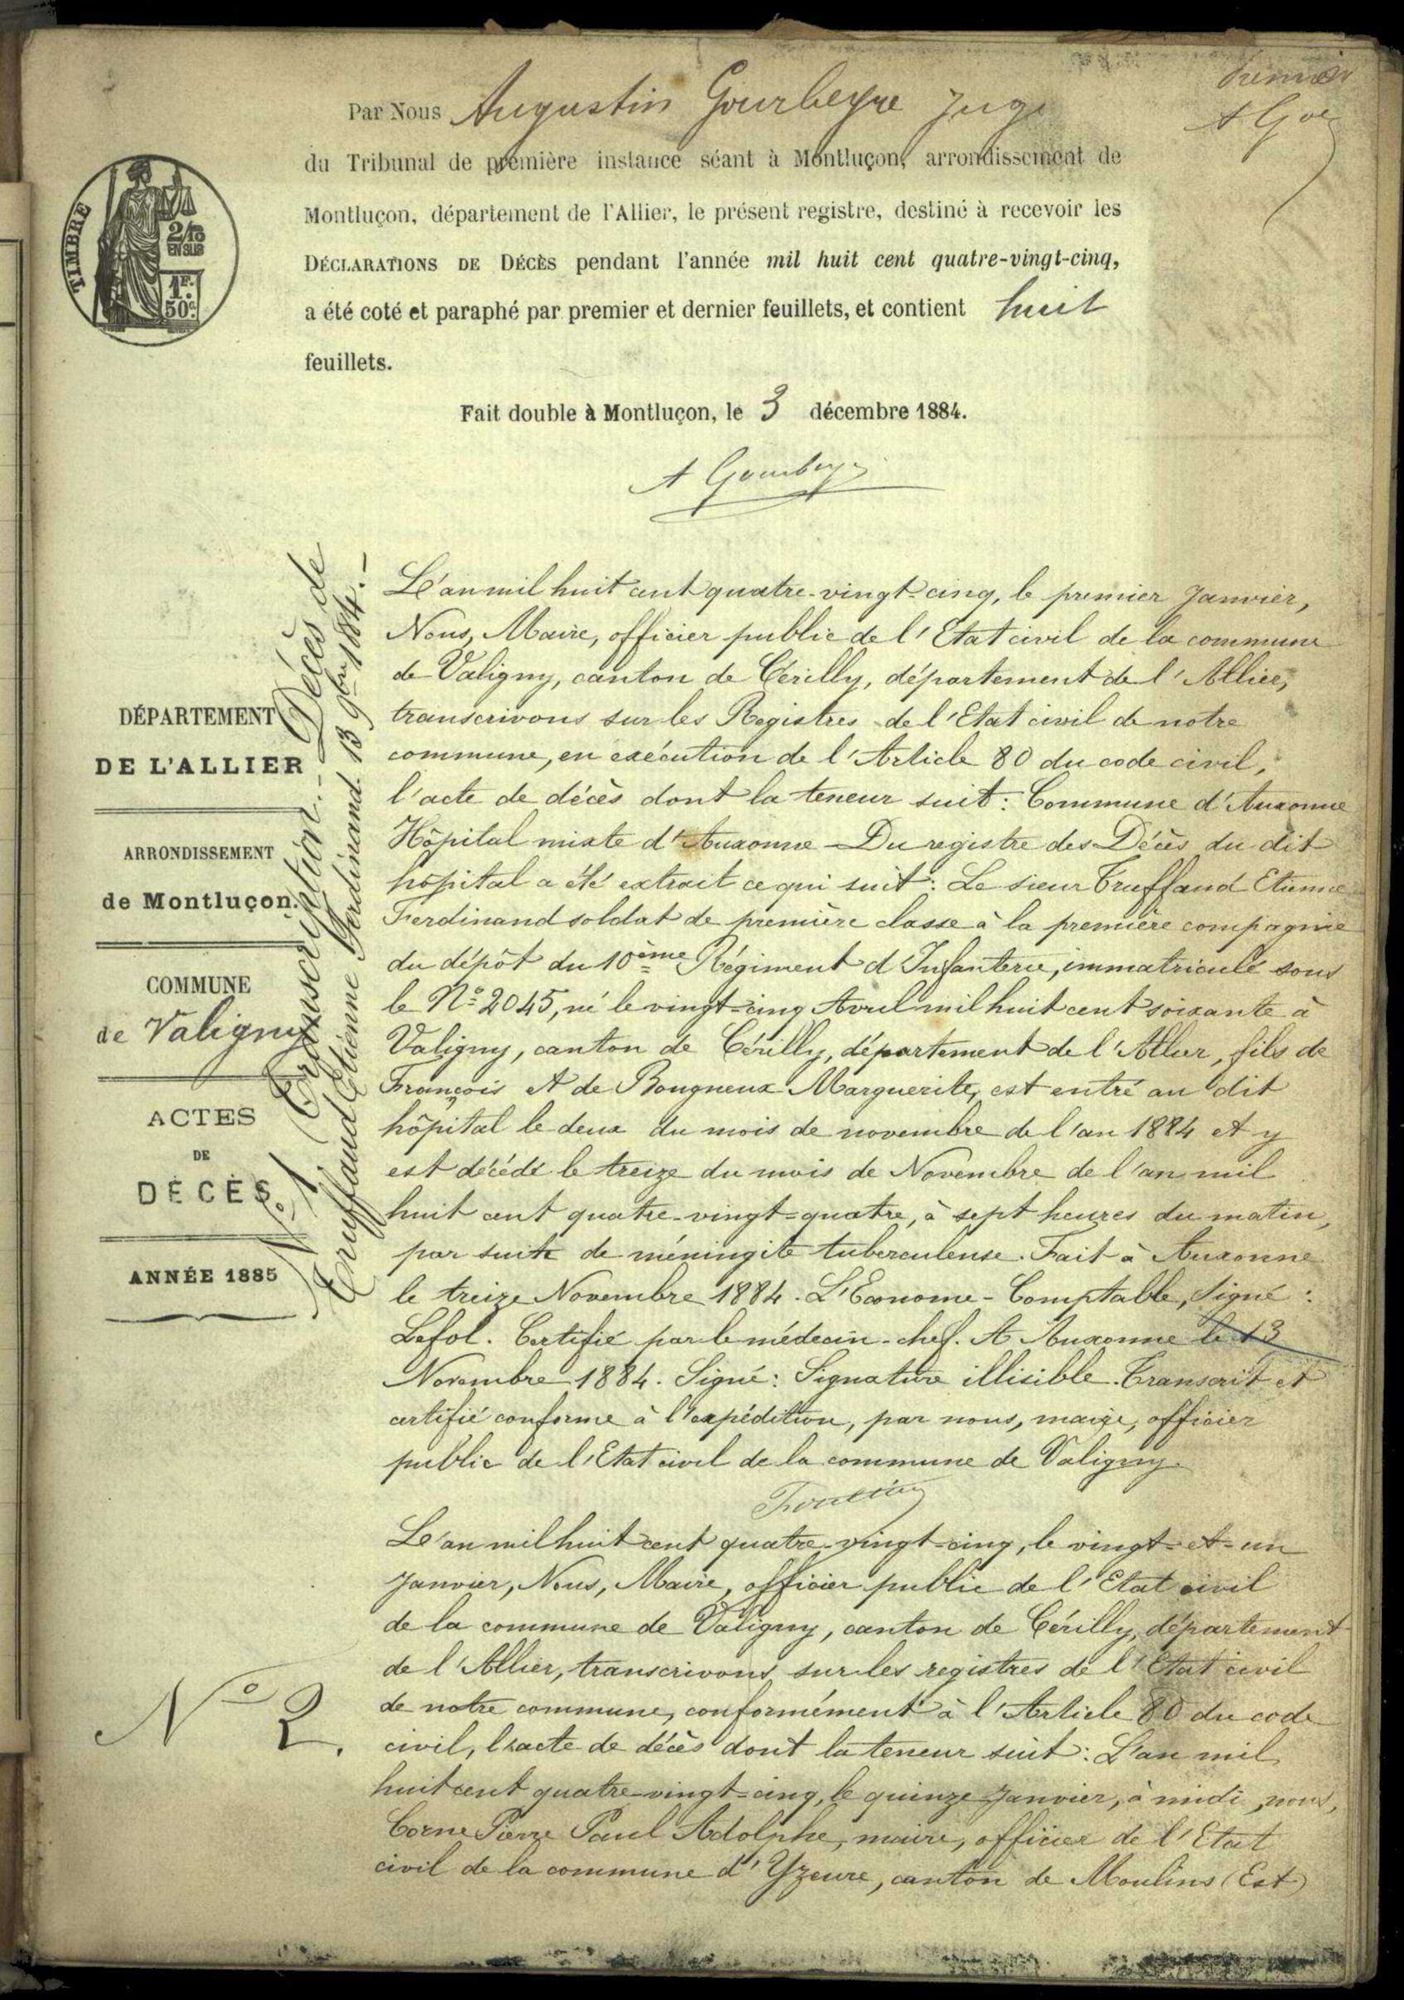 Premier
A Go
Par Nous Augustin Gourbeyre Juge
du Tribunal de première instance séant à Montluçon, arrondissement de
Montluçon, département de l'Allier, le présent registre, destiné à recevoir les
DÉCLARATIONS DE DÉCÈS pendant l'année mil huit cent quatre-vingt-cinq,
a été coté et paraphé par premier et dernier feuillets, et contient huit
feuillets.
Fait double à Montluçon, le 3 décembre 1884.
A Gourbeyre
TIMBRE
2/10
EN SUS
1F.
50c.
DÉPARTEMENT
DE L'ALLIER
ARRONDISSEMENT
de Montluçon.
COMMUNE
de Valigny
ACTES
DE
DÉCÈS
ANNÉE 1885
No 1 Transcription.- Décès de
Truffaud Etienne Ferdinand. 13 9bre 1884.-
L'an mil huit cent quatre-vingt-cinq, le premier Janvier,
Nous, Maire, officier public de l'Etat civil de la commune
de Valigny, canton de Cérilly, département de l'Allier,
transcrivons sur les Registres de l'Etat civil de notre
commune, en exécution de l'Article 80 du code civil,
l'acte de décès dont la teneur suit: Commune d'Auxonne
Hôpital mixte d'Auxonne - Du registre des Décès du dit
hôpital a été extrait ce qui suit: Le sieur Truffaud Etienne
Ferdinand soldat de première classe à la première compagnie
du dépôt du 10ème Régiment d'Infanterie, immatriculé sous
le No 2045, né le vingt-cinq Avril mil huit cent soixante à
Valigny, canton de Cérilly, département de l'Allier, fils de
François et de Bougneux Marguerite, est entré au dit
hôpital le deux du mois de novembre de l'an 1884 et y
est décédé le treize du mois de Novembre de l'an mil
huit cent quatre-vingt-quatre, à sept heures du matin,
par suite de méningite tuberculeuse. Fait à Auxonne
le treize Novembre 1884. L'Econome-Comptable, Signé:
Lefol. Certifié par le médecin-chef. A Auxonne le 13
Novembre 1884. Signé: Signature illisible. Transcrit et
certifié conforme à l'expédition, par nous, maire, officier
public de l'Etat civil de la commune de Valigny.
No 2.
L'an mil huit cent quatre-vingt-cinq, le vingt-et-un
Janvier, Nous, Maire, officier public de l'Etat civil
de la commune de Valigny, canton de Cérilly, département
de l'Allier, transcrivons sur les registres de l'Etat civil
de notre commune, conformément à l'Article 80 du code
civil, l'acte de décès dont la teneur suit: L'an mil
huit cent quatre-vingt-cinq, le quinze Janvier, à midi, nous,
Corne Pierre Paul Adolphe, maire, officier de l'Etat
civil de la commune d'Yzeure, canton de Moulins (Est)